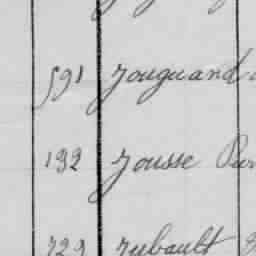 591 Jouguand
192 Jousse
729 Jubault